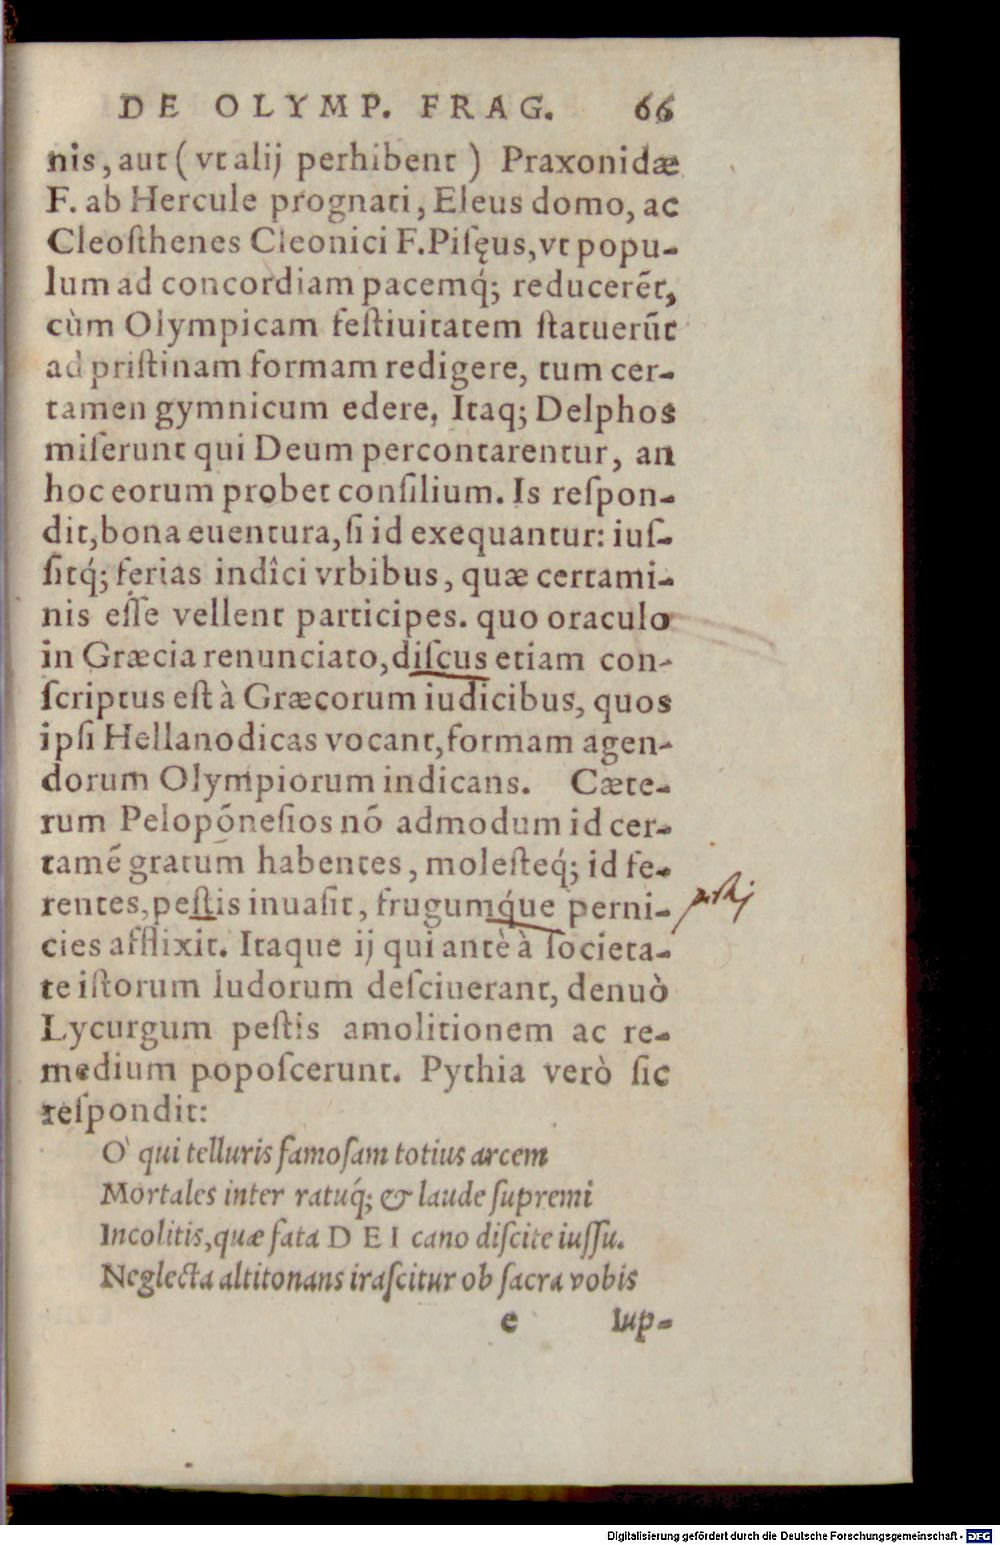 DE OLYMP. FRAG. 66
nis, aut ( vt alij perhibent ) Praxonidæ
F. ab Hercule prognati, Eleus domo, ac
Cleoſthenes Cleonici F. Piſęus, vt popu-
lum ad concordiam pacemq́; reducerẽt,
cùm Olympicam feſtiuitatem ſtatuerũt
ad priſtinam formam redigere, tum cer-
tamen gymnicum edere. Itaq; Delphos
miſerunt qui Deum percontarentur, an
hoc eorum probet conſilium. Is reſpon-
dit, bona euentura, ſi id exequantur: iuſ-
ſitq́; ferias indîci vrbibus, quæ certami-
nis eſſe vellent participes. quo oraculo
in Græcia renunciato, diſcus etiam con-
ſcriptus eſt à Græcorum iudicibus, quos
ipſi Hellanodicas vocant, formam agen-
dorum Olympiorum indicans. Cæte-
rum Pelopõneſios nõ admodum id cer-
tamẽ gratum habentes, moleſteq́; id fe-
rentes, peſtis inuaſit, frugumq́ue perni-
cies afflixit. Itaque ij qui antè à ſocieta-
te iſtorum ludorum deſciuerant, denuò
Lycurgum peſtis amolitionem ac re-
medium popoſcerunt. Pythia verò ſic
reſpondit:
O' qui telluris famoſam totius arcem
Mortales inter ratuq́; & laude ſupremi
Incolitis, quæ fata DEI cano diſcite iuſſu.
Neglecta altitonans iraſcitur ob ſacra vobis
e Iup-
Digitalisierung gefördert durch die Deutsche Forschungsgemeinschaft - DFG